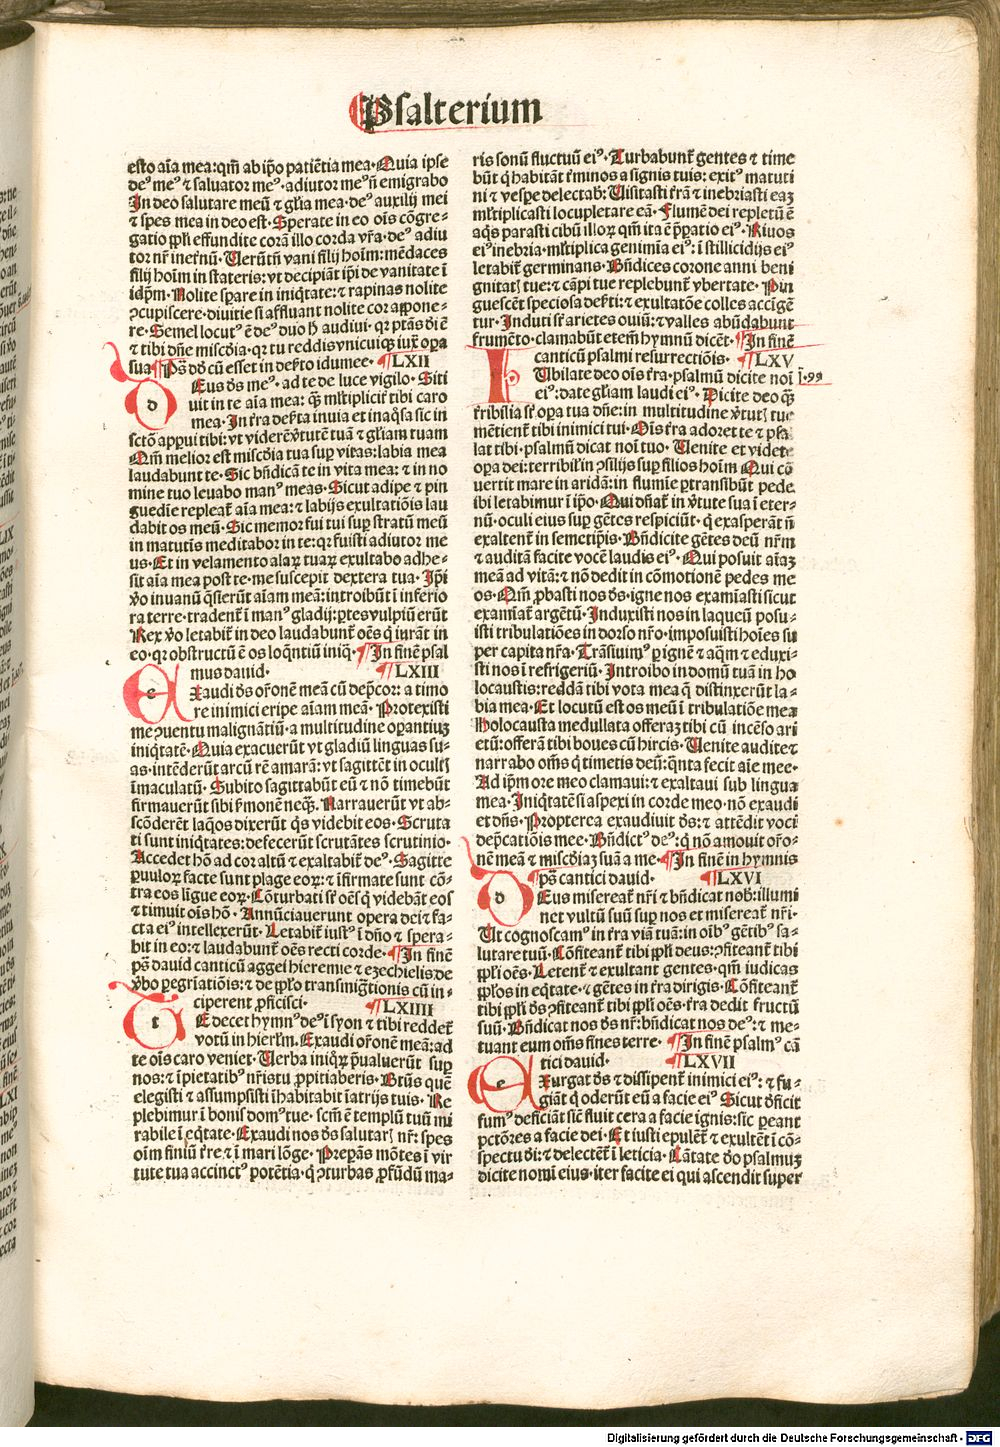 Psalterium
esto aīa mea: qm̄ ab ip̄o patiētia mea. Quia ipse
deꝰ meꝰ ⁊ saluator meꝰ. adiutor meꝰ nō emigrabo
In deo salutare meū ⁊ gl̄ia mea. deꝰ auxilij mei
⁊ spes mea in deo est. Sperate in eo oīs cōgre-
gatio pp̄li effundite corā illo corda vr̄a. deꝰ adiu
tor nr̄ inet̄nū. Uerūtn̄ vani filij hoīm: mēdaces
filij hoīm in stateris: vt decipiāt ip̄i de vanitate ī
idp̄m. Nolite sꝑare in iniq̄tate: ⁊ rapinas nolite
ꝯcupiscere. diuitie si affluant nolite cor appone-
re. Semel locutꝰ ē deꝰ duo h̄ audiui. qꝛ ptās dī ē
⁊ tibi dn̄e misc̄dia. qꝛ tu reddis vnicuiqꝫ iux̄ oꝑa
sua ¶ Ps̄ dd̄ cū esset in deſ̄to idumee. ¶ LXII
d Eus ds̄ meꝰ. ad te de luce vigilo. Siti
uit in te aīa mea: q̄ꝫ ml̄tiplicit̄ tibi caro
mea. In t̄ra deſ̄ta inuia et inaq̄sa sic in
sctō apꝑui tibi: vt viderē v̄tutē tuā ⁊ gl̄iam tuam
Qm̄ melior est misc̄dia tua suꝑ vitas: labia mea
laudabunt te. Sic bn̄dicā te in vita mea: ⁊ in no
mine tuo leuabo manꝰ meas. Sicut adipe ⁊ pin
guedīe repleat̄ aīa mea: ⁊ labijs exultatiōis lau
dabit os meū. Sic memor fui tui suꝑ stratū meū
in matutis meditabor in te: qꝛ fuisti adiutor me
us. Et in velamento alaꝝ tuaꝝ exultabo adhe-
sit aīa mea post te. me suscepit dextera tua. Ip̄i
v̄o inuanū q̄sierūt aīam meā: introibūt ī inferio
ra terre. tradent̄ ī manꝰ gladij: ꝑtes vulpiū erūt
Rex v̄o letabit̄ in deo laudabunt̄ oēs q̄ iurāt in
eo. qꝛ obstructū ē os loq̄ntiū iniq̄. ¶ In finē psal
mus dauid. ¶ LXIII
e Xaudi ds̄ or̄onē meā cū dep̄coꝛ: a timo
re inimici eripe aīam meā. Protexisti
me ꝯuentu malignātiū. a multitudine oꝑantiuꝫ
iniq̄tatē. Quia exacuerūt vt gladiū linguas su-
as. intēderūt arcū rē amarā: vt sagittēt in occult̄
īmaculatū. Subito sagittabūt eū ⁊ nō timebūt
firmauerūt sibi ẜmonē neqꝫ. Narrauerūt vt ab-
scōderēt laq̄os dixerūt q̄s videbit eos. Scruta
ti sunt iniqtates: defecerūt scrutātes scrutinio.
Accedet hō ad cor altū ⁊ exaltabit̄ deꝰ. Sagitte
ꝑuuloꝝ facte sunt plage eoꝝ: ⁊ īfirmate sunt cō-
tra eos līgue eoꝝ. Cōturbati sū oēs q̄ videbāt eos
⁊ timuit oīs hō. Annūciauerunt opera dei ⁊ fa-
cta eiꝰ intellexerūt. Letabit̄ iustꝰ ī dn̄o ⁊ spera-
bit in eo: ⁊ laudabunt̄ oēs recti corde. ¶ In finē
ps̄ dauid canticū aggei hieremie ⁊ ezechielis de
v̄bo ꝑegriatiōis: ⁊ de pp̄lo transmigr̄tionis cū in-
ciperent ꝓficisci. ¶ LXIIII
t E decet hymnꝰ deꝰ ī syon ⁊ tibi reddet̄
votū in hierl̄m. Exaudi or̄onē meā: ad
te oīs caro veniet. Uerba iniq̄ꝝ p̄ualuerūt suꝑ
nos: ⁊ īpietatibꝰ nr̄is tu ꝓpitiaberis. Btūs quē
elegisti ⁊ assumpsisti īhabitabit īatrijs tuis. Re
plebimur ī bonis domꝰ tue. scm̄ ē templū tuū mi
rabile ī eq̄tate. Exaudi nos ds̄ salutaꝛ nr̄: spes
oīm finiū t̄re ⁊ ī mari lōge. Preꝑās mōtes ī vir
tute tua accinctꝰ potētia. q̄ ꝯturbas ꝓfūdū ma-
ris sonū fluctuū eiꝰ. Turbabunt̄ gentes ⁊ time
būt q̄ habitāt t̄minos a signis tuis: exitꝰ matuti
ni ⁊ vesꝑe delectab̄. Uisitasti t̄rā ⁊ inebriasti eaꝫ
ml̄tiplicasti locupletare eā. Flumē dei repletū ē
aq̄s parasti cibū illoꝝ qm̄ ita ē p̄ꝑatio eiꝰ. Riuos
eiꝰ inebria. ml̄tiplica genimīa eiꝰ: ī stillicidijs eiꝰ
letabit̄ germinans. Bn̄dices corone anni beni
gnitat̄ tue: ⁊ cāpi tue replebunt̄ vbertate. Pin
guescēt speciosa deſ̄ti: ⁊ exultatōe colles accīgē
tur. Induti sū arietes ouiū: ⁊ valles abūdabunt
frumēto. clamabūt etem̄ hymnū dicēt. ¶ In finē
canticū psalmi resurrectiōis. ¶ LXV
I Ubilate deo oīs t̄ra. psalmū dicite noī j. 99
eiꝰ: date gl̄iam laudi eiꝰ. Dicite deo q̄ꝫ
t̄ribilia sū oꝑa tua dn̄e: in multitudine v̄tut̄ tue
mētient̄ tibi inimici tui. Oīs t̄ra adoret te ⁊ psa
lat tibi. psalmū dicat noī tuo. Uenite et videte
oꝑa dei: terribil̄ in ꝯsilijs suꝑ filios hoīm Qui cō
uertit mare in aridā: in flumīe ꝑtransibūt pede.
ibi letabimur ī ip̄o. Qui dn̄at̄ in v̄tute sua ī eter-
nū. oculi eius suꝑ gētes respiciūt. q̄ exasꝑāt nō
exaltent̄ in semetip̄is. Bn̄dicite gētes deū nr̄m
⁊ auditā facite vocē laudis eiꝰ. Qui posuit aīaꝫ
meā ad vitā: ⁊ nō dedit in cōmotionē pedes me
os. Qm̄ ꝓbasti nos ds̄. igne nos examīasti sicut
examīat̄ argētū. Induxisti nos in laqueū posu-
isti tribulatiōes in dorso nr̄o. imposuisti hoīes su
per capita nr̄a. Trāsiuimꝰ ꝑ ignē ⁊ aq̄m ⁊ eduxi-
sti nos ī refrigeriū. Introibo in domū tuā in ho
locaustis: reddā tibi vota mea q̄ distinxerūt la-
bia mea. Et locutū est os meū ī tribulatiōe mea
Holocausta medullata offeraꝫ tibi cū incēso ari
etū: offerā tibi boues cū hircis. Uenite audite ⁊
narrabo om̄s q̄ timetis deū: q̄nta fecit aīe mee.
Ad ip̄m ore meo clamaui: ⁊ exaltaui sub lingua
mea. Iniq̄tatē si aspexi in corde meo. nō exaudi
et dn̄s. Propterea exaudiuit ds̄: ⁊ attēdit voci
dep̄catiōis mee. Bn̄dictꝰ deꝰ: q̄ nō amouit or̄o-
nē meā ⁊ misc̄diaꝫ suā a me. ¶ In finē in hymnis
ps̄ cantici dauid. ¶ LXVI
d Eus misereat̄ nr̄i ⁊ bn̄dicat nob̄: illumi
net vultū suū suꝑ nos et misereat̄ nr̄i.
Ut cognoscamꝰ in t̄ra viā tuā: in oībꝰ gētibꝰ sa-
lutare tuū. Cōfiteant̄ tibi pp̄li deus: ꝯfiteant̄ tibi
pp̄li oēs. Letent̄ ⁊ exultant gentes. qm̄ iudicas
pp̄los in eq̄tate. ⁊ gētes in t̄ra dirigis. Cōfiteant̄
tibi pp̄li ds̄ ꝯfiteant̄ tibi pp̄li oēs. t̄ra dedit fructū
suū. Bn̄dicat nos ds̄ nr̄: bn̄dicat nos deꝰ: ⁊ me-
tuant eum om̄s fines terre. ¶ In finē psalmꝰ cā
tici dauid. ¶ LXVII
e Xurgat ds̄ ⁊ dissipent̄ inimici eiꝰ: ⁊ fu-
giāt q̄ oderūt eū a facie eiꝰ Sicut d̄ficit
fumꝰ deficiāt sic̄ fluit cera a facie ignis: sic ꝑeant
pctōres a facie dei. Et iusti epulēt̄ ⁊ exultēt ī cō-
spectu dī: ⁊ delectēt̄ ī leticia. Cātate dō psalmuꝫ
dicite nomī eius. iter facite ei qui ascendit super
Digitalisierung gefördert durch die Deutsche Forschungsgemeinschaft - DFG